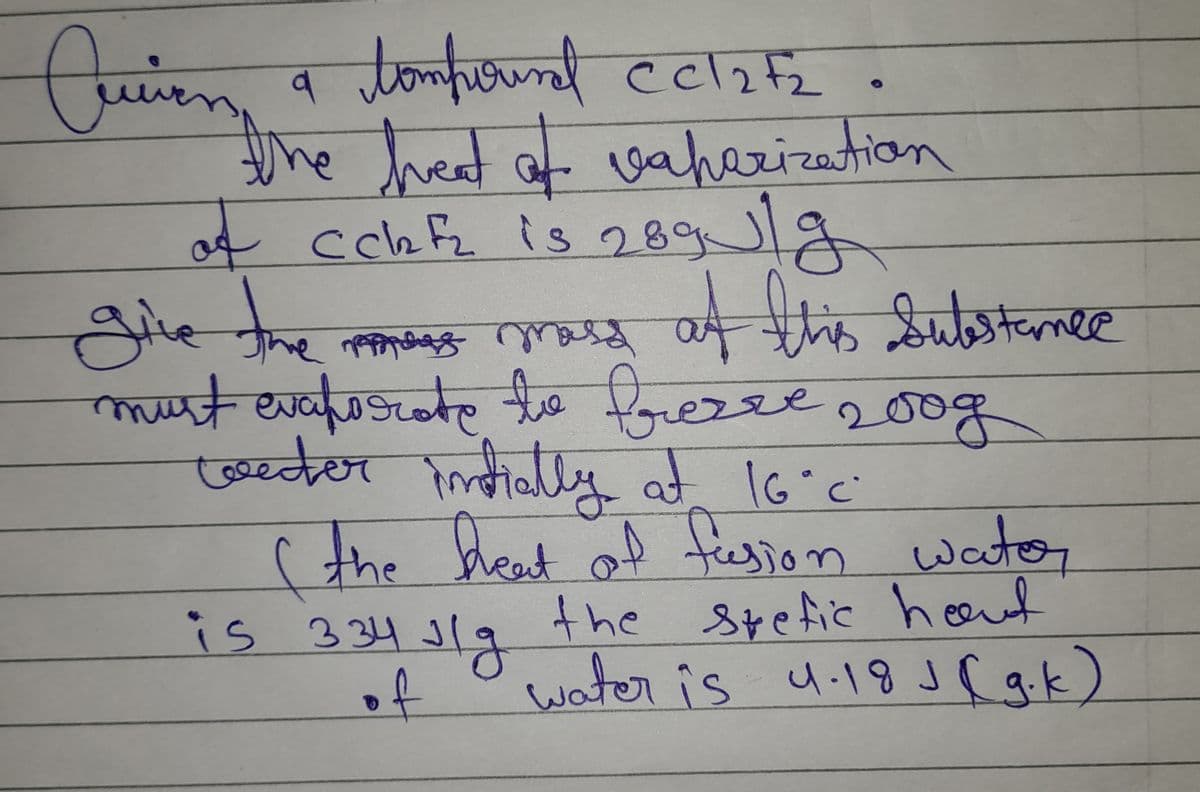 Given, a Compound CCl2F2 .
the heat of vaporization
of CCl2F2 is 289 J/g
give the mass of this Substance
must evaporate to freezze 200g
water initially at 16°C
( the heat of fusion water
is 334 J/g the spefic heat
of water is 4.18 J (g.k)